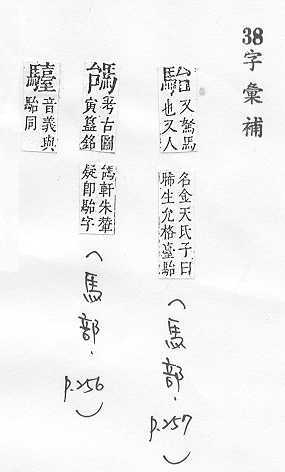 38字彙補
駘
又駑馬
也又人
名金天氏子曰
生允格臺駘
(馬部.p.257)
考古圖
寅簋銘
軒朱
疑即駘字
(馬部.p.256)
音義與
駘同